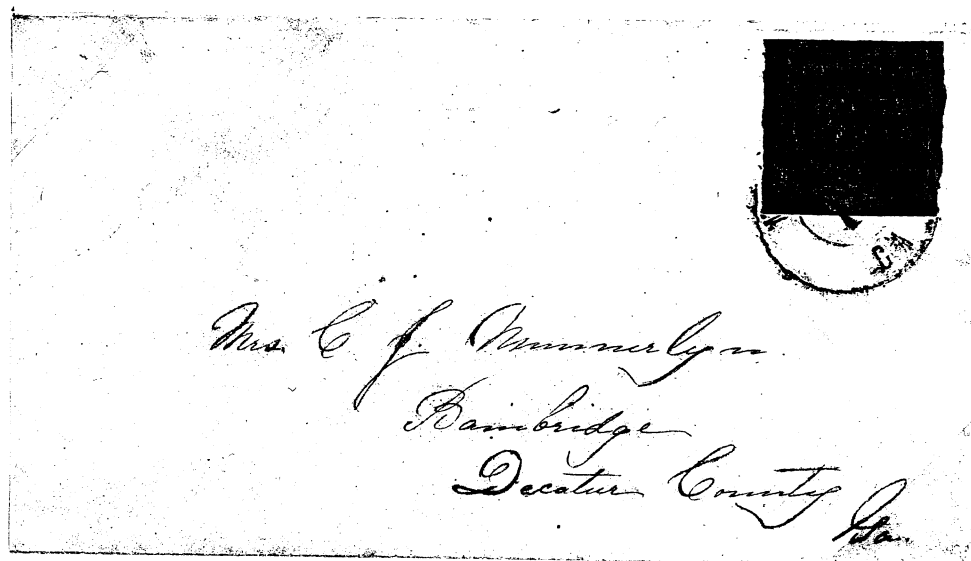 Mrs. C. J. Munnerlyn
Bainbridge
Decatur County
Ga.